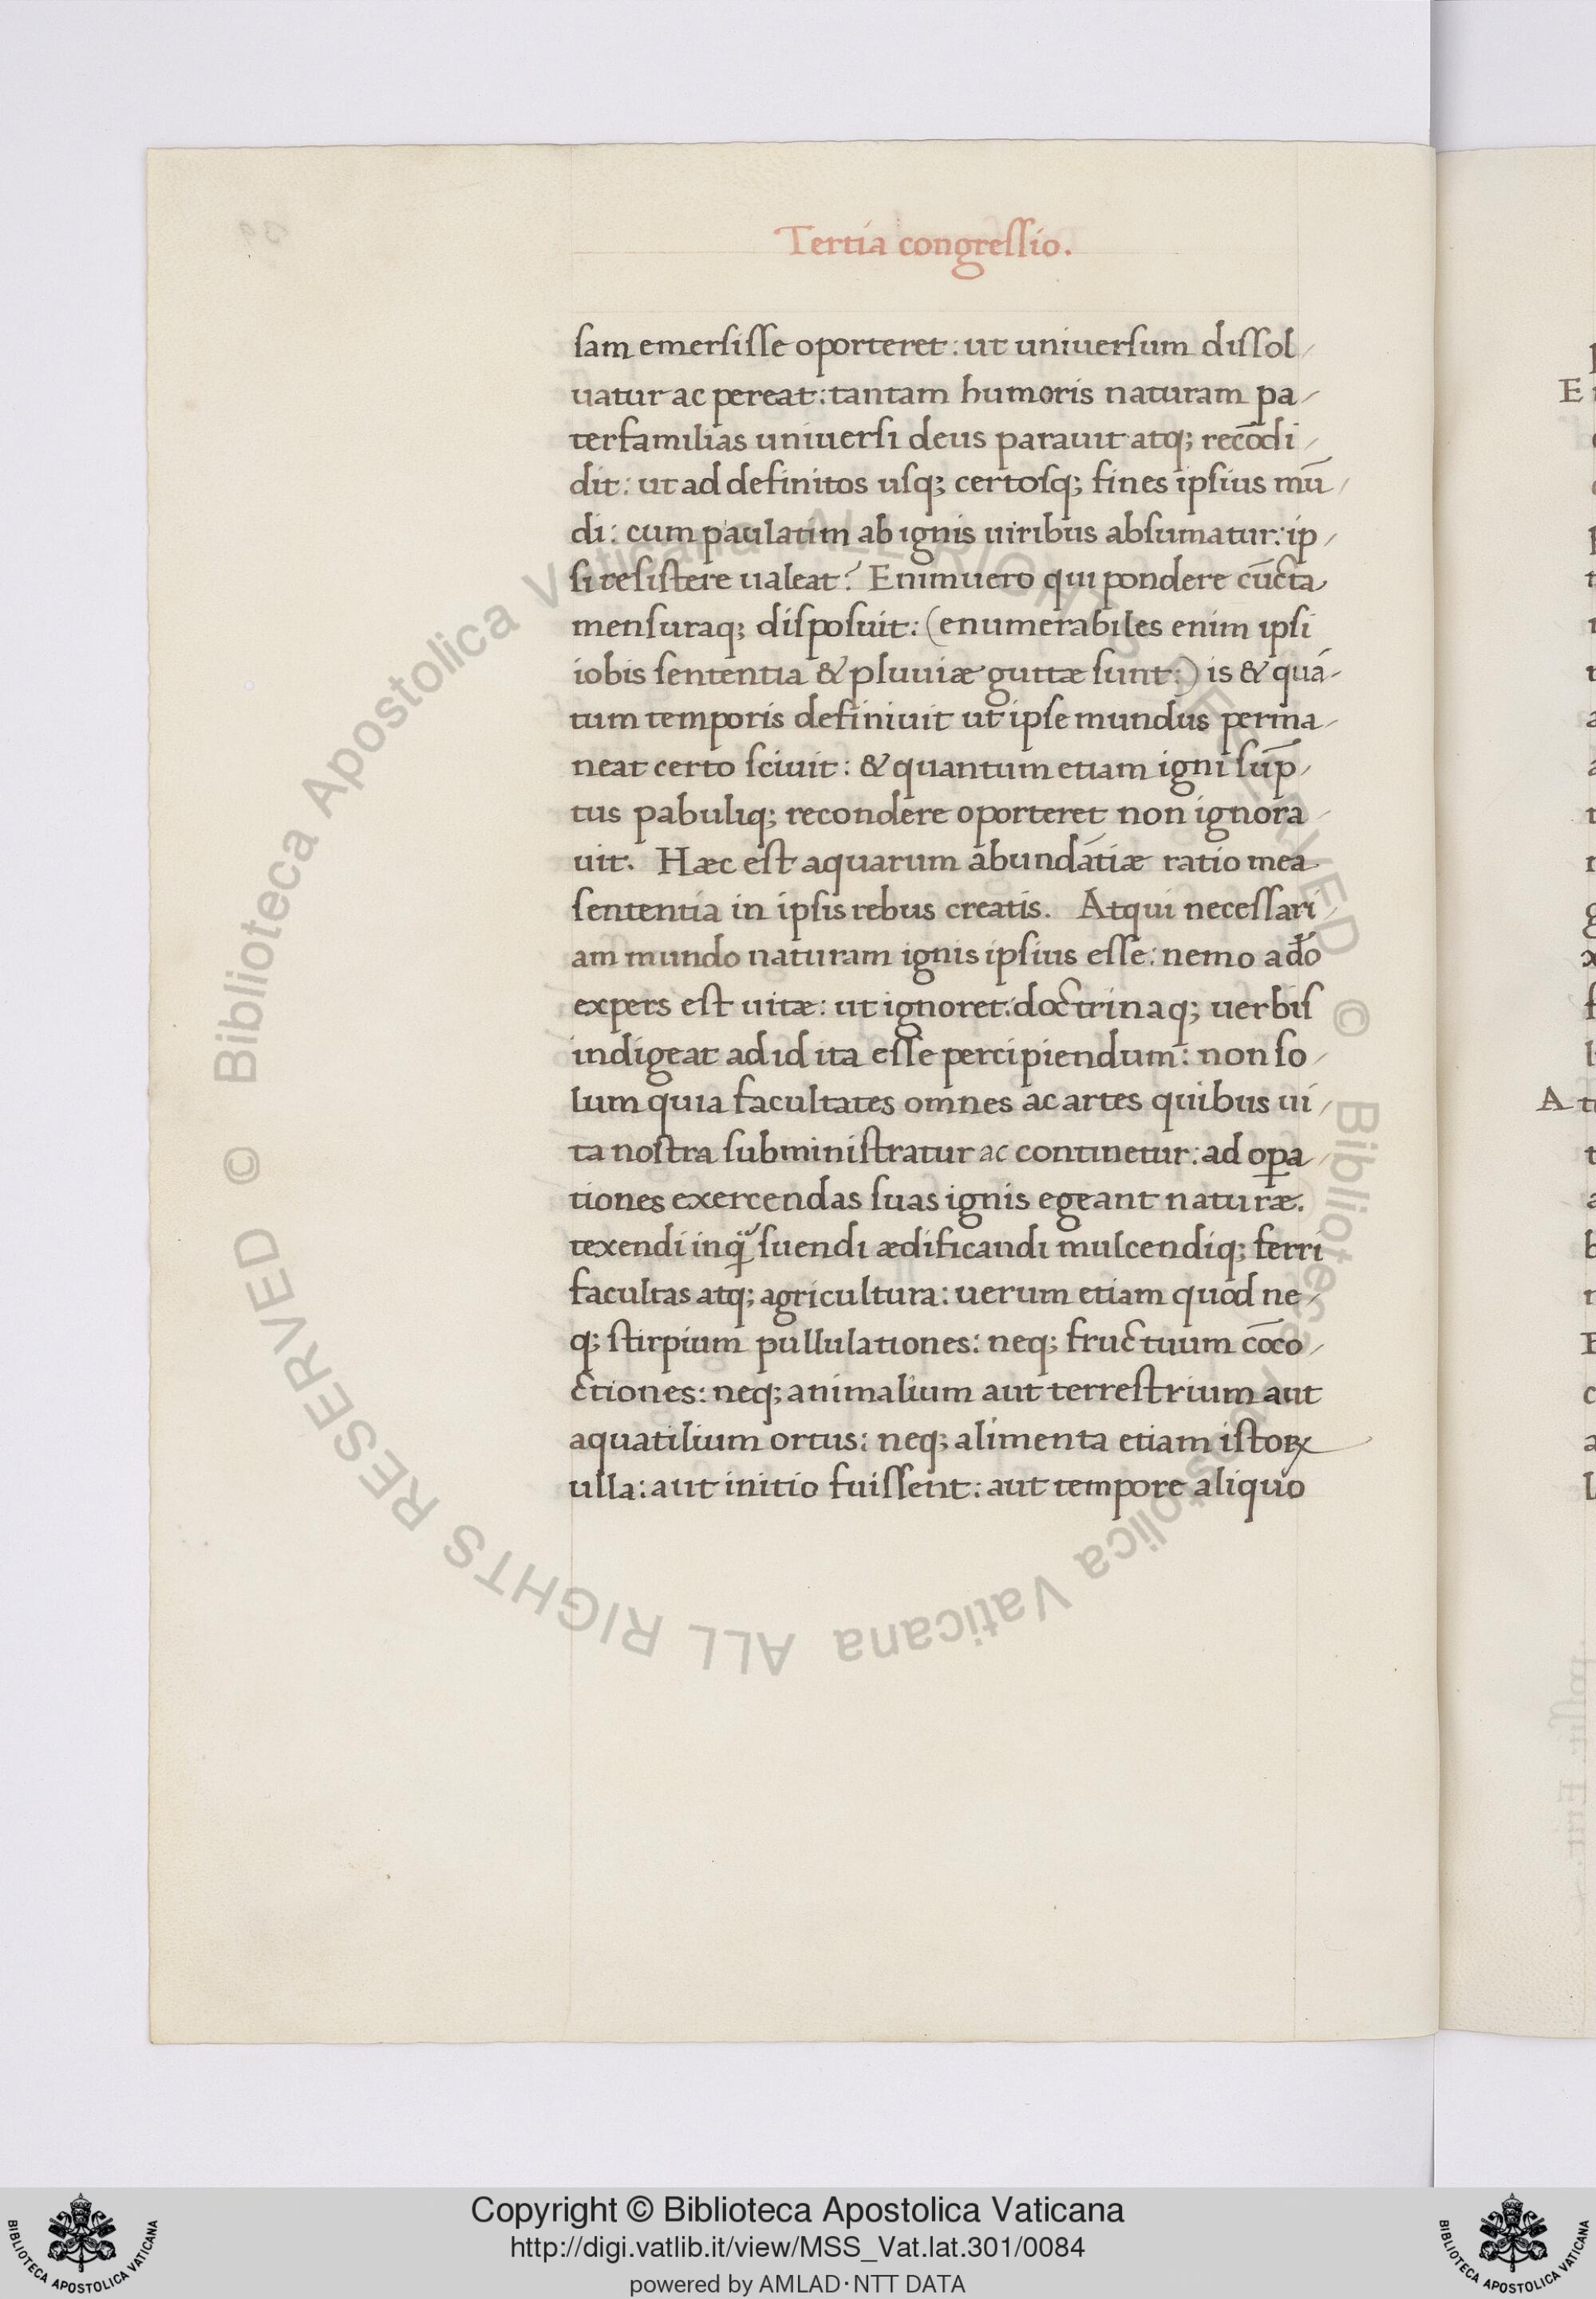 Tertia congreſſio.
ſam emerſiſſe oporteret: ut uniuerſum diſſol
uatur ac pereat: tantam humoris naturam pa
terfamilias uniuerſi deus parauit atq; recōdi
dit: ut ad definitos uſq; certoſq; fines ipſius mū
di: cum paulatim ab ignis uiribus abſumatur: ip
ſi reſiſtere ualeat? Enimuero qui pondere cūcta
menſuraq; diſpoſuit: (enumerabiles enim ipſi
iobis ſententia & pluuiæ guttæ ſunt:) is & quā
tum temporis definiuit ut ipſe mundus perma
neat certo ſciuit: & quantum etiam igni ſūp
tus pabuliq; recondere oporteret non ignora
uit. Hæc eſt aquarum abundātiæ ratio mea
ſententia in ipſis rebus creatis. Atqui neceſſari
am mundo naturam ignis ipſius eſſe: nemo adō
expers eſt uitæ: ut ignoret: doctrinaq; uerbiſ
indigeat ad id ita eſſe percipiendum: non ſo
lum quia facultates omnes ac artes quibus ui
ta noſtra ſubminiſtratur ac continetur: ad oꝑa
tiones exercendas ſuas ignis egeant naturæ.
texendi ſuendi ædificandi mulcendiq; ferri
facultas atq; agricultura: uerum etiam quod ne
q; ſtirpium pullulationes: neq; fructuum cōco
ctiones: neq; animalium aut terreſtrium aut
aquatilium ortus: neq; alimenta etiam iſtoꝝ
ulla: aut initio fuiſſent: aut tempore aliquo
E
A
© Biblioteca Apostolica Vaticana ALL RIGHTS RESERVED © Biblioteca Apostolica Vaticana ALL RIGHTS RESERVED
Copyright © Biblioteca Apostolica Vaticana
http://digi.vatlib.it/view/MSS_Vat.lat.301/0084
powered by AMLAD·NTT DATA
BIBLIOTECA APOSTOLICA VATICANA
BIBLIOTECA APOSTOLICA VATICANA